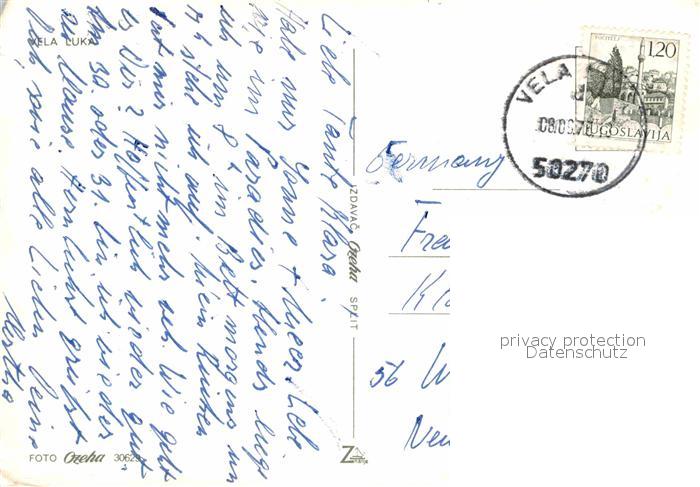 VELA LUKA
Liebe Tante Klara!
Hab nur Sonne + Meer. Lebe
wie im Paradies. Abends liege
ich um 8 h im Bett morgens um
stehe ich auf. Mein Rücken
tut mir nicht mehr weh. Wie geht
es Dir? Hoffentlich wieder gut
Am 30. oder 31. bin ich wieder
zu Hause. Herzlichst grüßt
Dich sowie alle Lieben Deine
FOTO Ozeha 30629
IZDAVAČ Ozeha SPLIT
POČITELJ
1.20
JUGOSLAVIJA
VELA
50270
Germany
56 W
privacy protection
Datenschutz